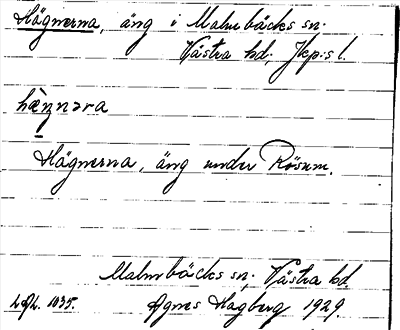 Hägnerna, äng i Malmbäcks sn.
Västra hd; Jkp:s l.
hæ̀ŋnəra
Hägnerna, äng under Rösum.
Malmbäcks sn; Västra hd.
Agnes Hagberg 1929.